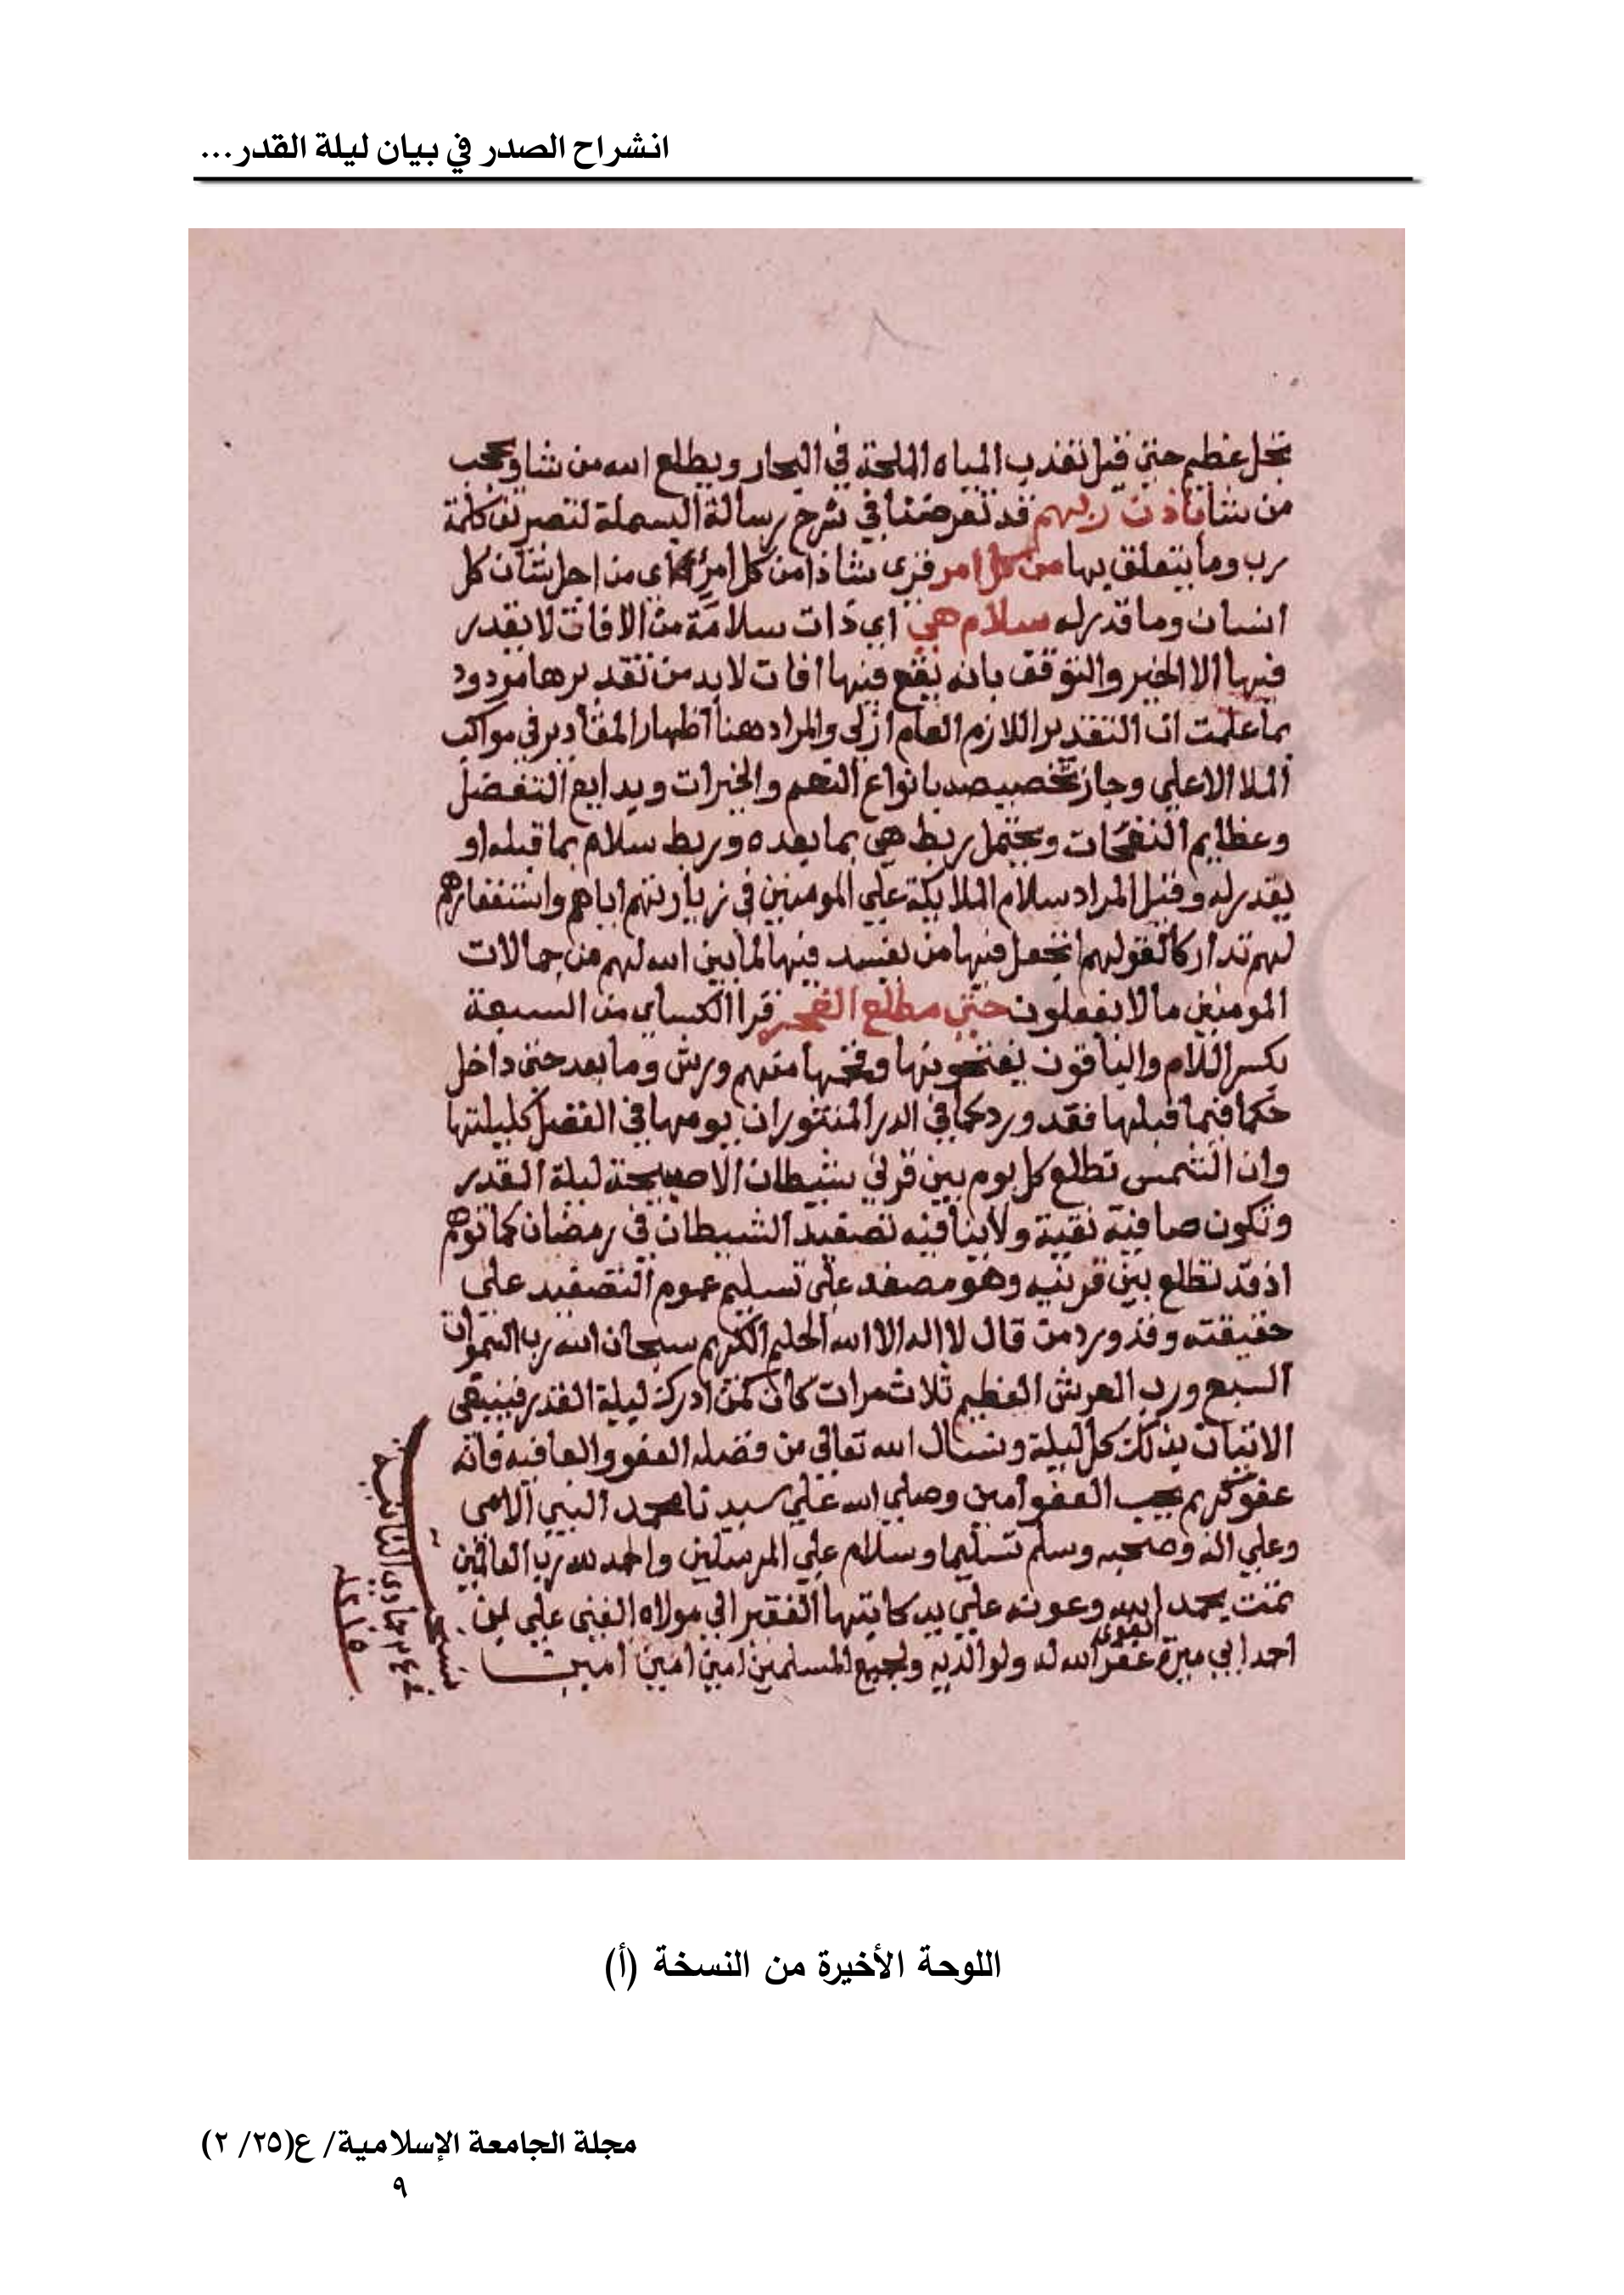 انشراح الصدر في بيان ليلة القدر...
تجل عظيم حتى قيل تعذب المياه الملحة في البحار ويطلع الله من شا ويحجب
من شا باذن ربهم قد تعرضنا في شرح رسالة البسملة لتصريف كلمة
رب وما يتعلق بها من كل امر قرى شاذا من كل امرئ اي من اجل شان كل
انسان وما قدر له سلام هي اي ذات سلامة من الافات لا يقدر
فيها الا الخير والتوقف بانه يقع فيها افات لا بد من تقديرها مردود
بما علمت ان التقدير اللازم العام ازلى والمراد هنا اظهار المقادير في مواكب
الملا الاعلي وجاز تخصيصه بانواع النعم والخيرات وبدايع التفضل
وعظايم النفحات ويحتمل ربط هي بما بعده وربط سلام بما قبله او
يقدر له وقيل المراد سلام الملايكة علي المومنين في زيارتهم اياهم واستغفارهم
لهم تداركا لقولهم اتجعل فيها من يفسد فيها لما بين الله لهم من حالات
المومنين ما لا يفعلون حتى مطلع الفجر قرا الكساى من السبعة
بكسر اللام والباقون يفتحونها وفخمها منهم ورش وما بعد حتى داخل
حكما فيما قبلها فقد ورد كما في الدر المنثور ان يومها في الفضل كليلتها
وان الشمس تطلع كل يوم بين قرني شيطان الا صبيحة ليلة القدر
وتكون صافية نقية ولا ينافيه تصفيد الشيطان في رمضان كما توهم
اذ قد تطلع بين قرنيه وهو مصفد على تسليم عموم التصفيد على
حقيقته وقد ورد من قال لا اله الا الله الحليم الكريم سبحان الله رب السموات
السبع ورب العرش العظيم ثلاث مرات كان كمن ادرك ليلة القدر فينبغى
الاتيان بذلك كل ليلة ونسال الله تعالى من فضله العفو والعافيه فانه
عفو كريم يحب العفو امين وصلي الله علي سيدنا محمد النبي الامى
وعلي اله وصحبه وسلم تسليما وسلام علي المرسلين والحمد لله رب العالمين
تمت بحمد الله وعونه علي يد كاتبها الفقير الي مولاه الغنى علي بن
القوي
احمد ابي ميرة غفر الله له ولوالديه ولجميع المسلمين امين امين امين
جمادي الثانية
اللوحة الأخيرة من النسخة (أ)
مجلة الجامعة الإسلامية/ ع(٢٥/ ٢)
٩